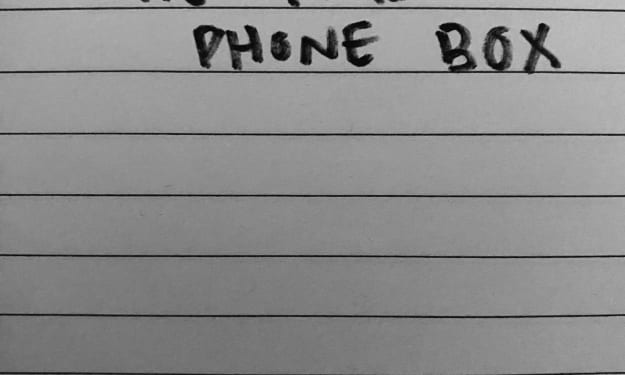 PHONE BOX